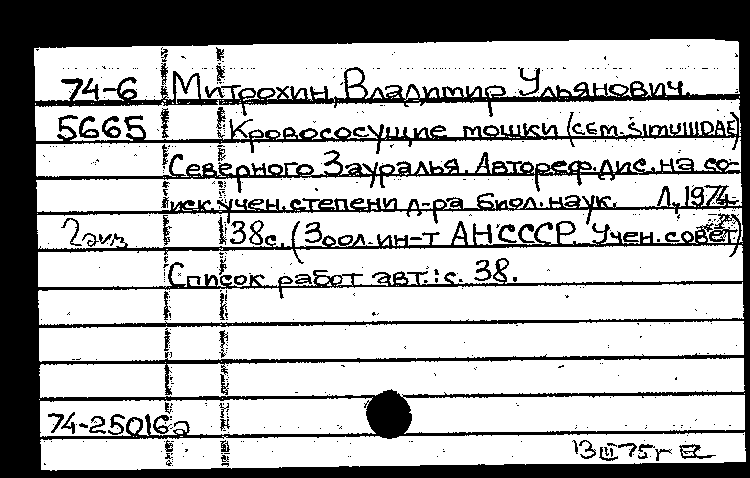 74-6 Митрохин, Владимир Ульянович.
5665 Кровососущие мошки (сем. Simuliidae)
Северного Зауралья. Автореф. дис. на со-
иск. учен. степени д-ра биол. наук. Л., 1974.
2 экз 38с. (Зоол. ин-т АН СССР. Учен. совет)
Список работ авт.: с. 38.
74-25016а
13 III 75г